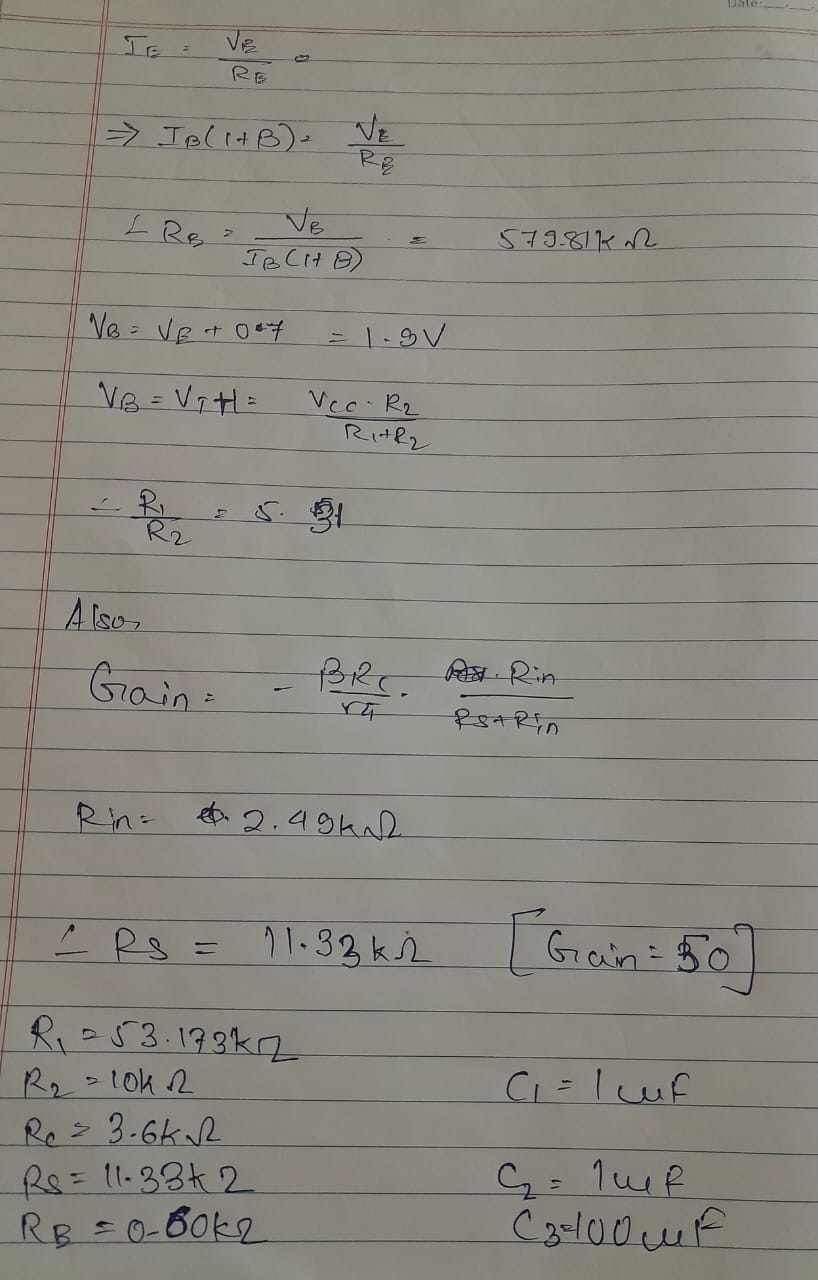 Date:
IE = VE / RE =
⇒ IB(1+β) = VE / RE
∴ RE = VE / IB(1+β) = 579.81kΩ
VB = VE + 0.7 = 1.9V
VB = VTH = VCC · R2 / R1+R2
∴ R1 / R2 = 5.31
Also,
Gain = - βRC / rπ · Rin / RS+Rin
Rin = 2.49kΩ
∴ RS = 11.33kΩ [Gain = 50]
R1 = 53.173kΩ
R2 = 10kΩ C1 = 1uF
RC = 3.6kΩ
RS = 11.33kΩ C2 = 1uF
RE = 0.60kΩ C3=100uF